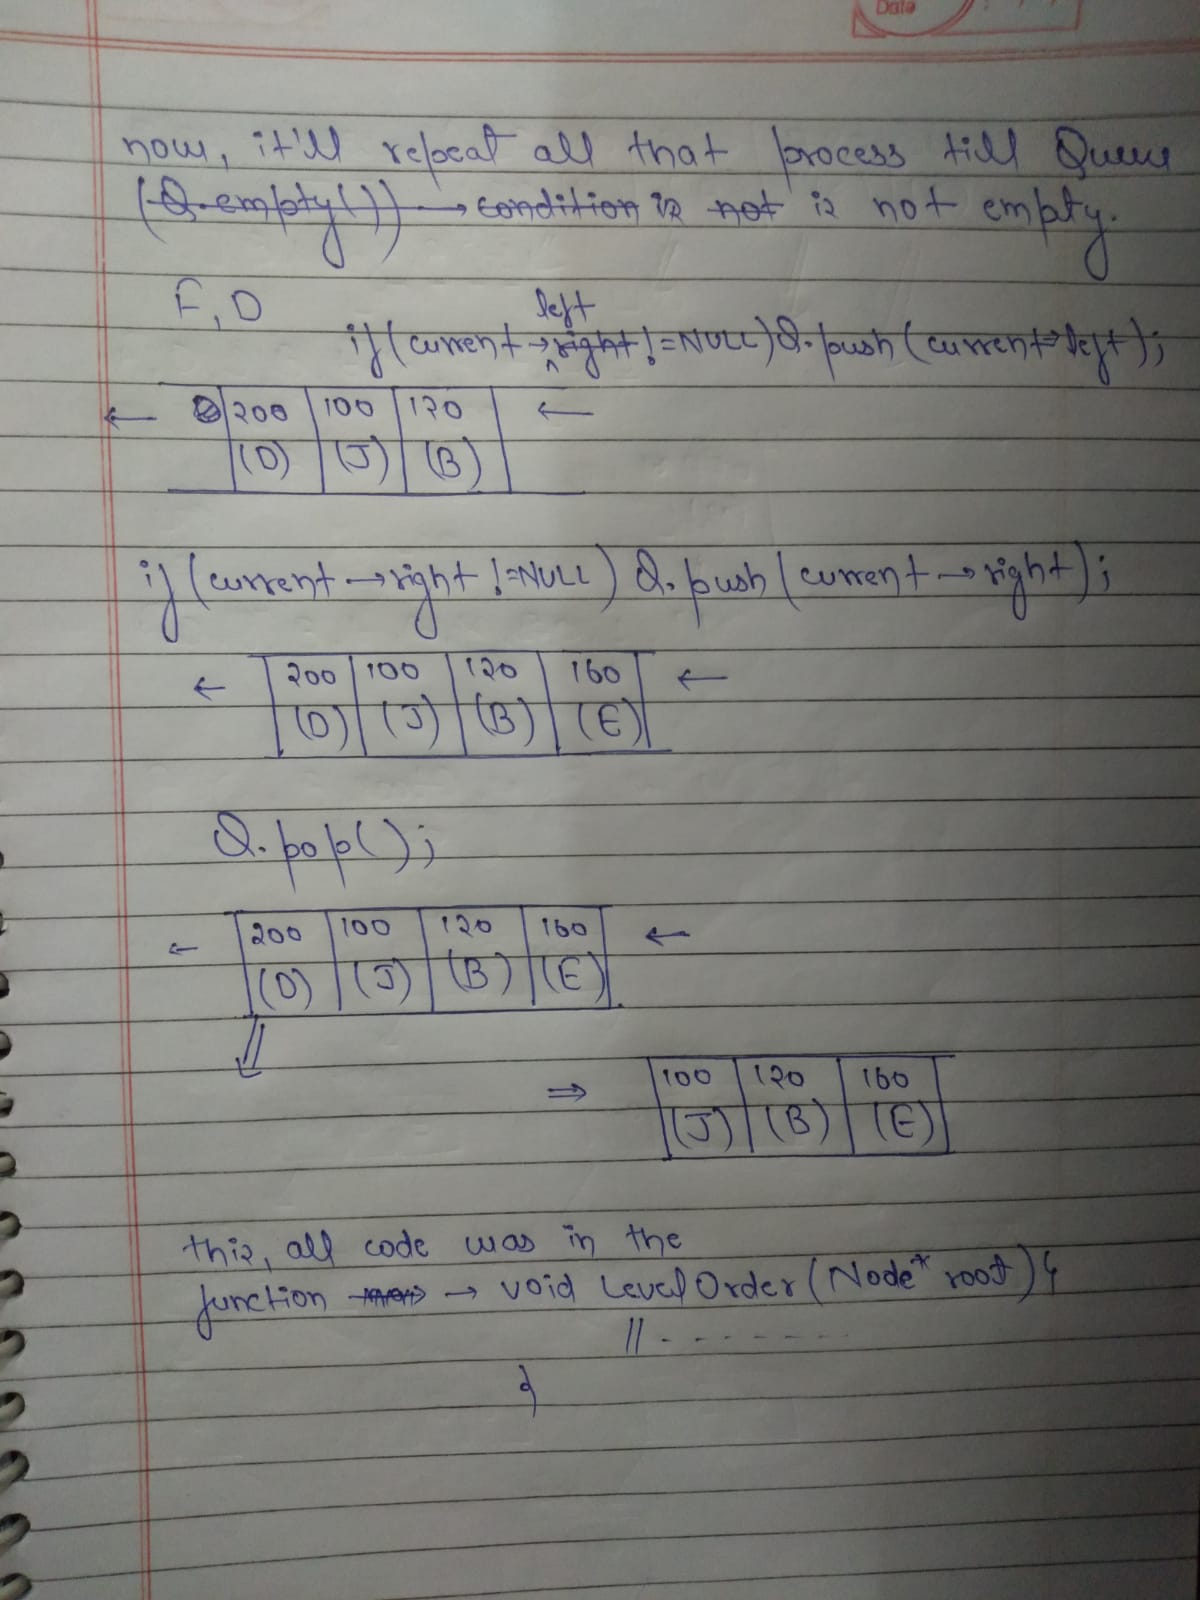 Date
now, it'll repeat all that process till Queue
(Q.empty()) → condition is not is not empty.
F, D
left
if (current → right != NULL) Q.push (current → left);
← 200 100 120 ←
(D) (J) (B)
if (current → right != NULL) Q.push (current → right);
← 200 100 120 160 ←
(D) (J) (B) (E)
Q.pop();
← 200 100 120 160 ←
(D) (J) (B) (E)
⇒ 100 120 160
(J) (B) (E)
this, all code was in the
function → void LevelOrder (Node* root) {
// - - - - - - -
}